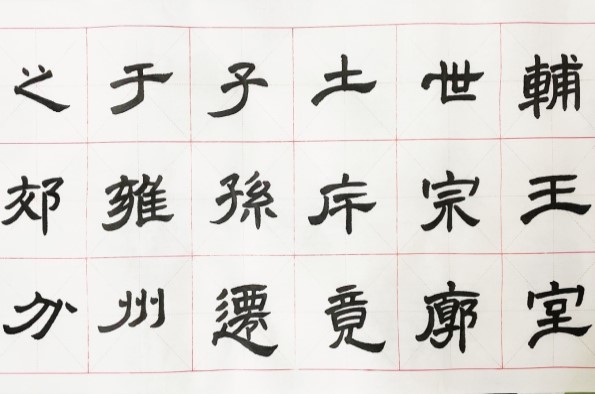 輔王室
世宗廓
土斥竟
子孫遷
于雍州
之郊分